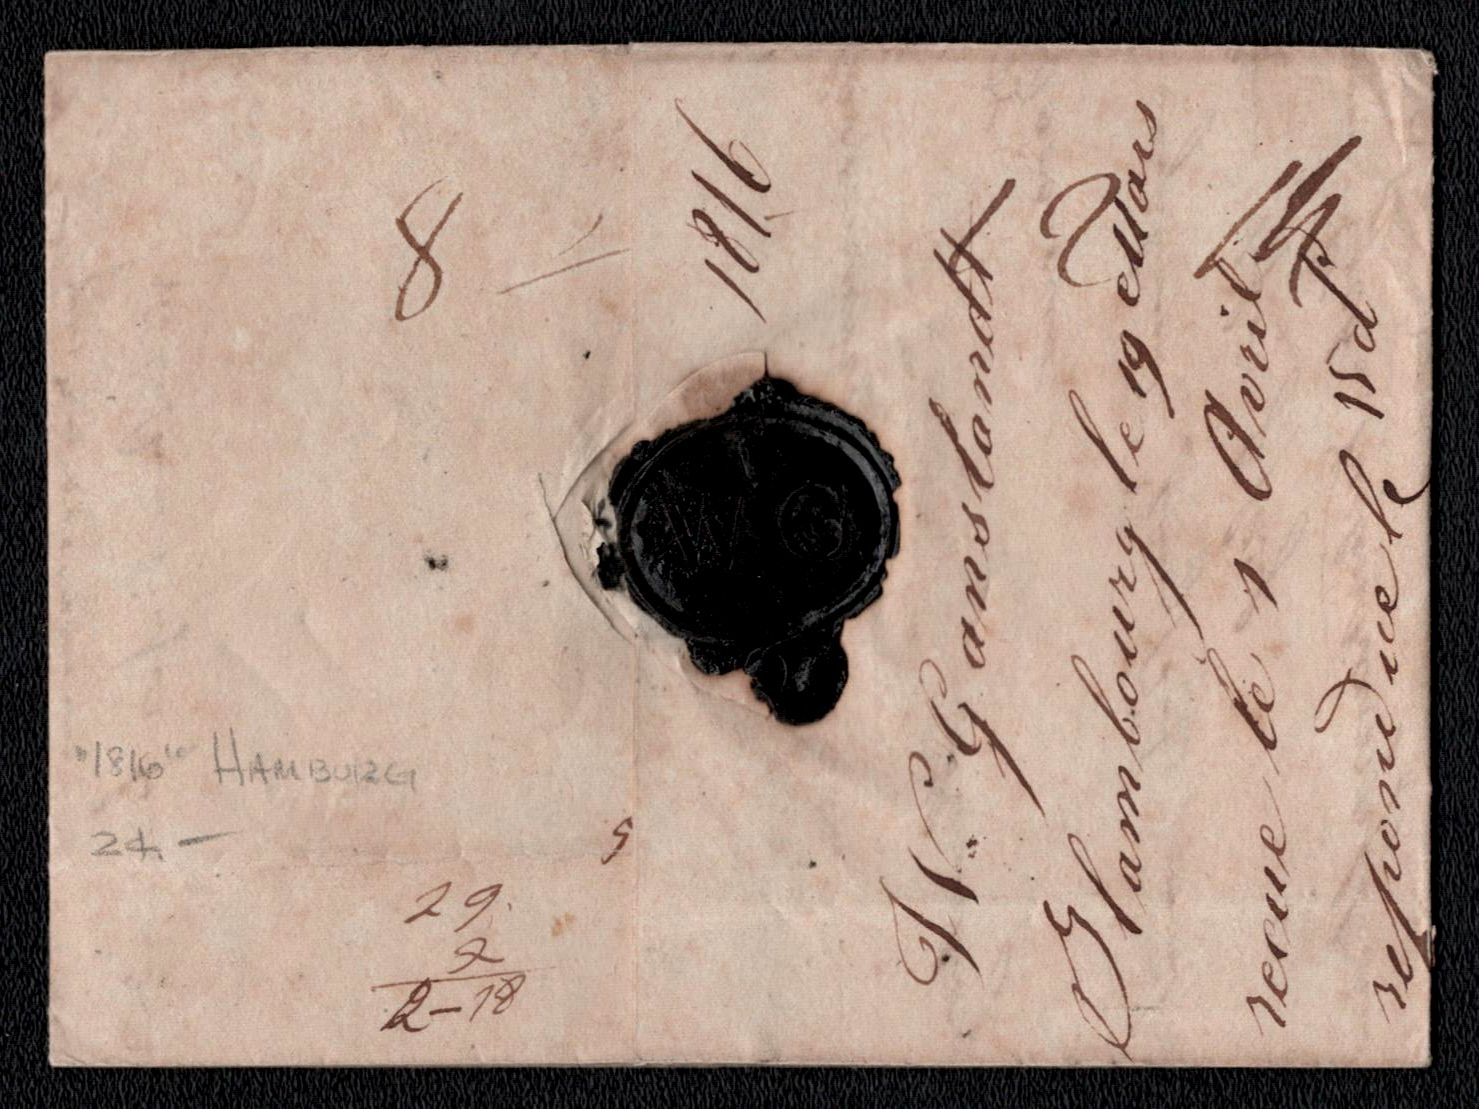 1816
W. Ganslandt
Hambourg le 19 Mars
recue le 1 Avril
repondue le 15 d°
8
"1816" HAMBURG
24.—
29.
2
2-18
5
W G